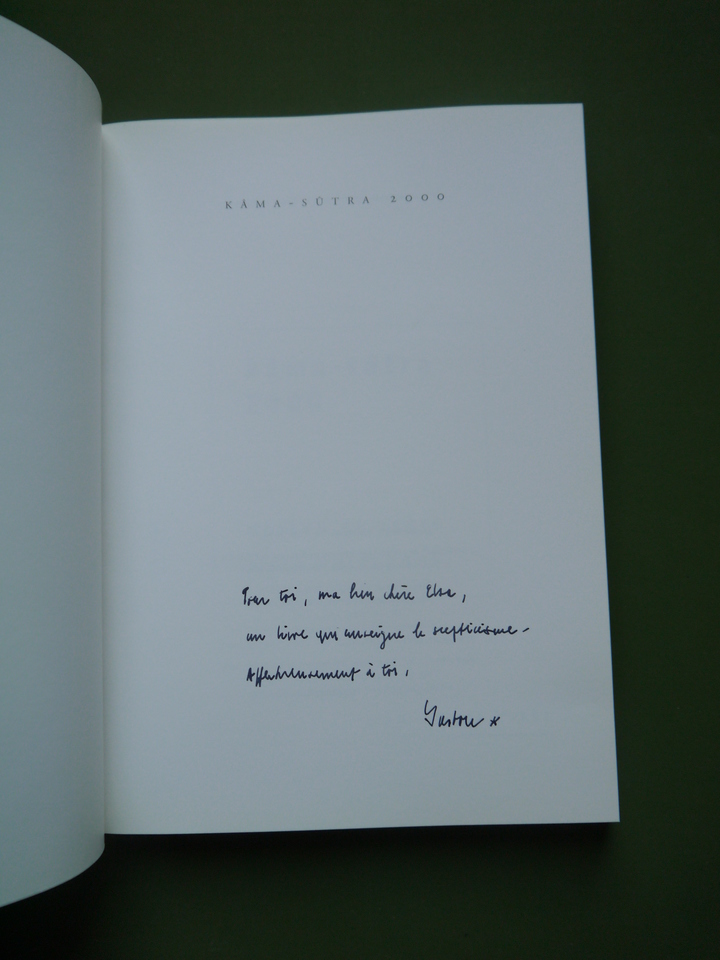 KÂMA-SÛTRA 2000
Pour toi, ma bien chère Elsa,
un livre qui enseigne le scepticisme -
Affectueusement à toi,
Gaston *